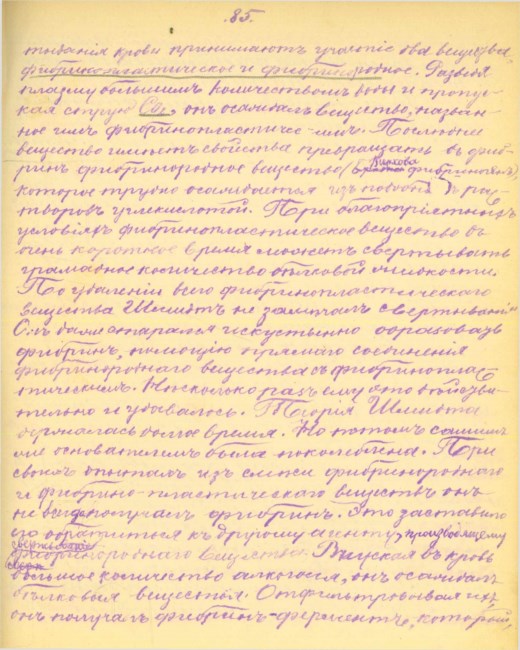 85.
тыванія крови принимаютъ участіе два вещества,
фибринопластическое и фибринородное. Разведя
плазму большимъ количествомъ воды и пропус-
кая струю Со₂, онъ осаждалъ вещество, назван-
ное имъ фибринопластиче-имъ. Последнее
вещество имѣетъ свойства превращать въ фиб-
ринъ фибринородное вещество (Вирхова фибриногенъ),
которое трудно осаждается изъ подоб въ рас-
творовъ углекислотой. При благопріятныхъ
условіяхъ фибринопластическое вещество въ
очень короткое время можетъ свертывать
громадное количество бѣлковой жидкости.
По удаленіи всего фибринопластическаго
вещества Шмидтъ не замѣчалъ свертыванія.
Онъ далѣе старался искуственно образовать
фибринъ, помощію прямаго соединенія
фибринороднаго вещества съ фибриноплас-
тическимъ. Нѣсколько разъ ему это дѣйстви-
тельно и удавалось. Теорія Шмидта
держалась долгое время. Но потомъ самимъ
же основателемъ была поколеблена. При
своихъ опытахъ изъ смѣси фибринороднаго
и фибрино-пластическаго веществъ онъ
не всегда получалъ фибринъ. Это заставило
его обратиться къ другому агенту, производящему
свертываніе
фибринороднаго вещества. Выпуская въ кровь
большое количество алкоголя, онъ осаждалъ
бѣлковыя вещества. Отфильтровывая ихъ,
онъ получалъ фибринъ-ферментъ, который,